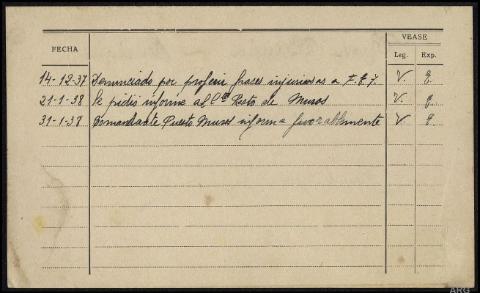 FECHA VEASE
Leg. Exp.
14-12-37 Denunciado por proferir frases injuriosas a F.E.T. V. 9.
21-1-38 Se pidió informe al Cte Psto de Muros V. 9.
31-1-38 Comandante Puesto Muros informa favorablemente V 9.
ARG